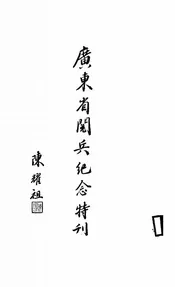 廣東省閱兵紀念特刊
陳耀祖